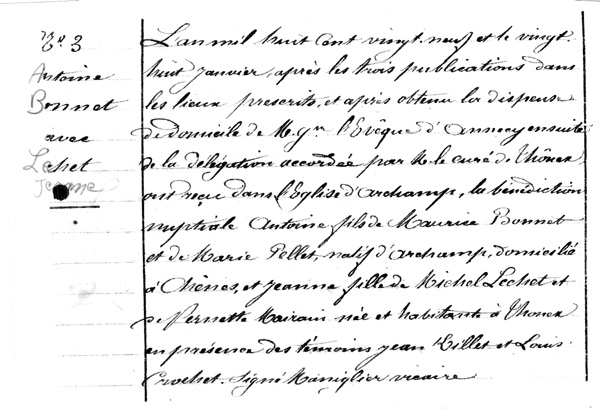 N.º 3
Antoine
Bonnet
avec
Lechet
Jeanne
L'an mil huit cent vingt-neuf et le vingt-
huit janvier, après les trois publications dans
les lieux prescrits, et après obtenu la dispense
de domicile de M.gr l'Evêque d'Annecy ensuite
de la délégation accordée par R.le curé de Thônex
ont reçu dans l'Eglise d'Archamp, la bénédiction
nuptiale Antoine, fils de Maurice Bonnet
et de Marie Pellet, natif d'Archamp, domicilié
à Chênes, et Jeanne fille de Michel Lechet et
de Pernette Mairain née et habitante à Thonex
en présence des témoins Jean Tillet et Louis
Crochet. Signé Maniglier vicaire